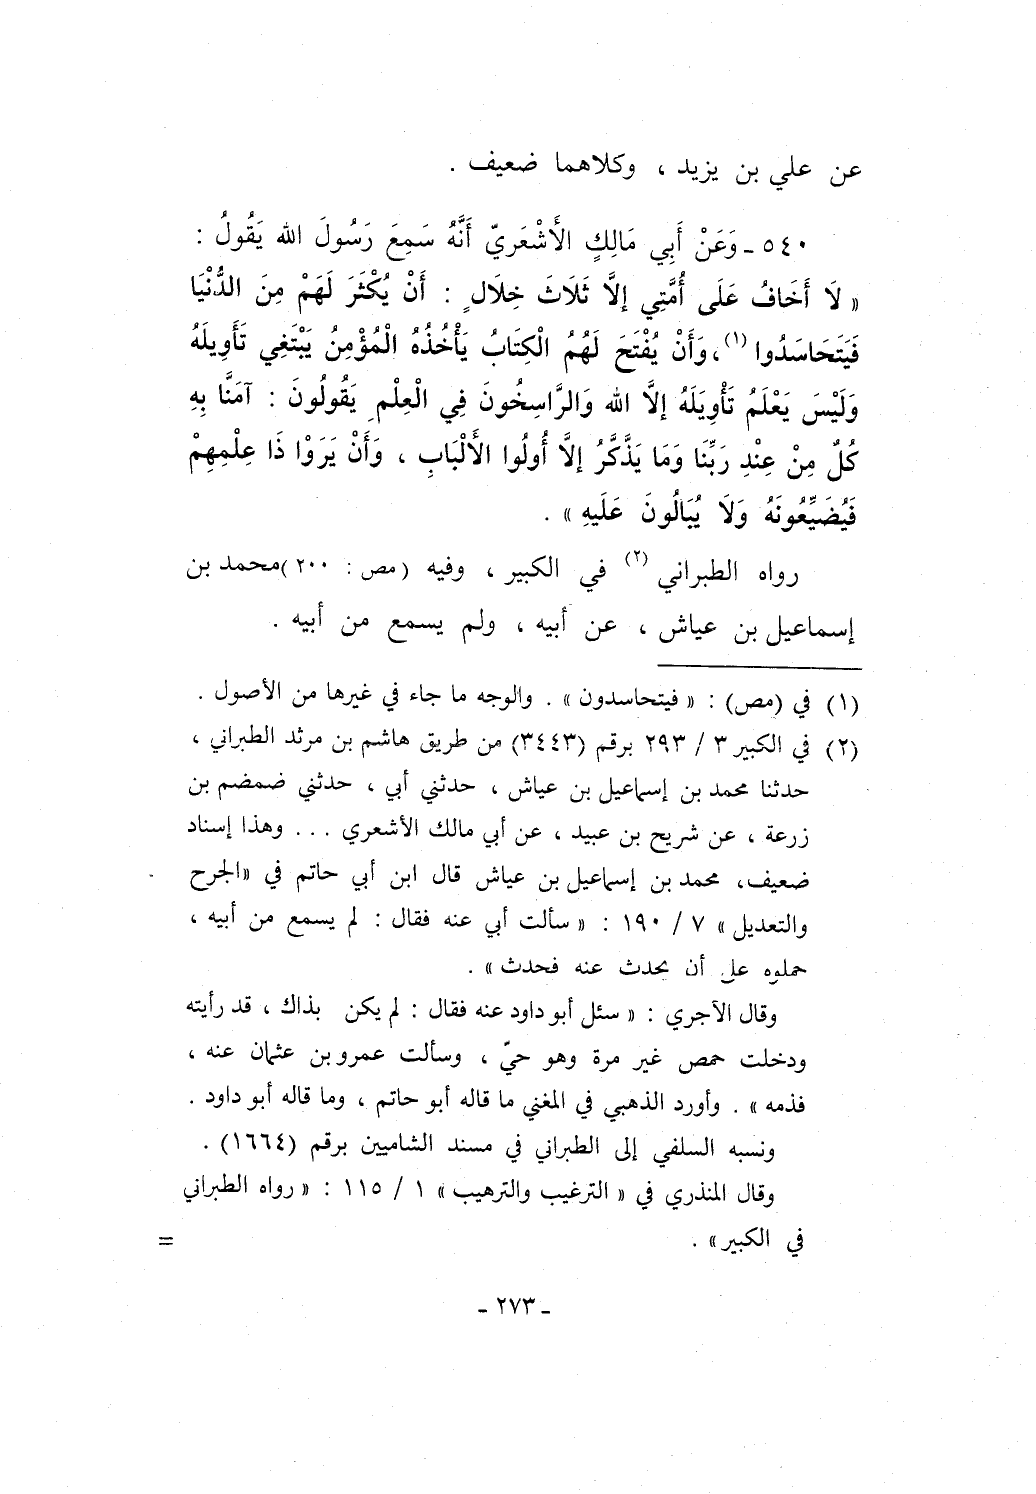 عن علي بن يزيد ، وكلاهما ضعيف .
٥٤٠ ـ وَعَنْ أَبِي مَالِكٍ الأَشْعَرِيّ أَنَّهُ سَمِعَ رَسُولَ الله يَقُولُ :
« لَا أَخَافُ عَلَى أُمَّتِي إلاَّ ثَلَاثَ خِلَالٍ : أَنْ يُكْثَرَ لَهَمْ مِنَ الدُّنْيَا
فَيَتَحَاسَدُوا (١)، وَأَنْ يُفْتَحَ لَهُمُ الْكِتَابُ يَأْخُذُهُ الْمُؤْمِنُ يَبْتَغِي تَأَوِيلَهُ
وَلَيْسَ يَعْلَمُ تَأْوِيَلَهُ إلاَّ الله وَالرَّاسِخُونَ فِي الْعِلْمِ يَقُولُونَ : آمَنَّا بِهِ
كُلٌ مِنْ عِنْدِ رَبِّنَا وَمَا يَذَّكَّرُ إلاَّ أُولُوا الأَلْبَابِ ، وَأَنْ يَرَوْا ذَا عِلْمِهِمْ
فَيُضَيِّعُونَهُ وَلَا يُبَالُونَ عَلَيهِ » .
رواه الطبراني (٢) في الكبير ، وفيه (مص : ٢٠٠ )محمد بن
إسماعيل بن عياش ، عن أبيه ، ولم يسمع من أبيه .
(١) في (مص) : « فيتحاسدون » . والوجه ما جاء في غيرها من الأصول .
(٢) في الكبير ٣ / ٢٩٣ برقم (٣٤٤٣) من طريق هاشم بن مرثد الطبراني ،
حدثنا محمد بن إسماعيل بن عياش ، حدثني أبي ، حدثني ضمضم بن
زرعة ، عن شريح بن عبيد ، عن أبي مالك الأشعري ... وهذا إسناد
ضعيف، محمد بن إسماعيل بن عياش قال ابن أبي حاتم في «الجرح
والتعديل » ٧ / ١٩٠ : « سألت أبي عنه فقال : لم يسمع من أبيه ،
حملوه على أن يحدث عنه فحدث » .
وقال الآجري : « سئل أبو داود عنه فقال : لم يكن بذاك ، قد رأيته
ودخلت حمص غير مرة وهو حيّ ، وسألت عمرو بن عثمان عنه ،
فذمه » . وأورد الذهبي في المغني ما قاله أبو حاتم ، وما قاله أبو داود .
ونسبه السلفي إلى الطبراني في مسند الشاميين برقم (١٦٦٤) .
وقال المنذري في « الترغيب والترهيب » ١ / ١١٥ : « رواه الطبراني
في الكبير » . =
ـ ٢٧٣ ـ